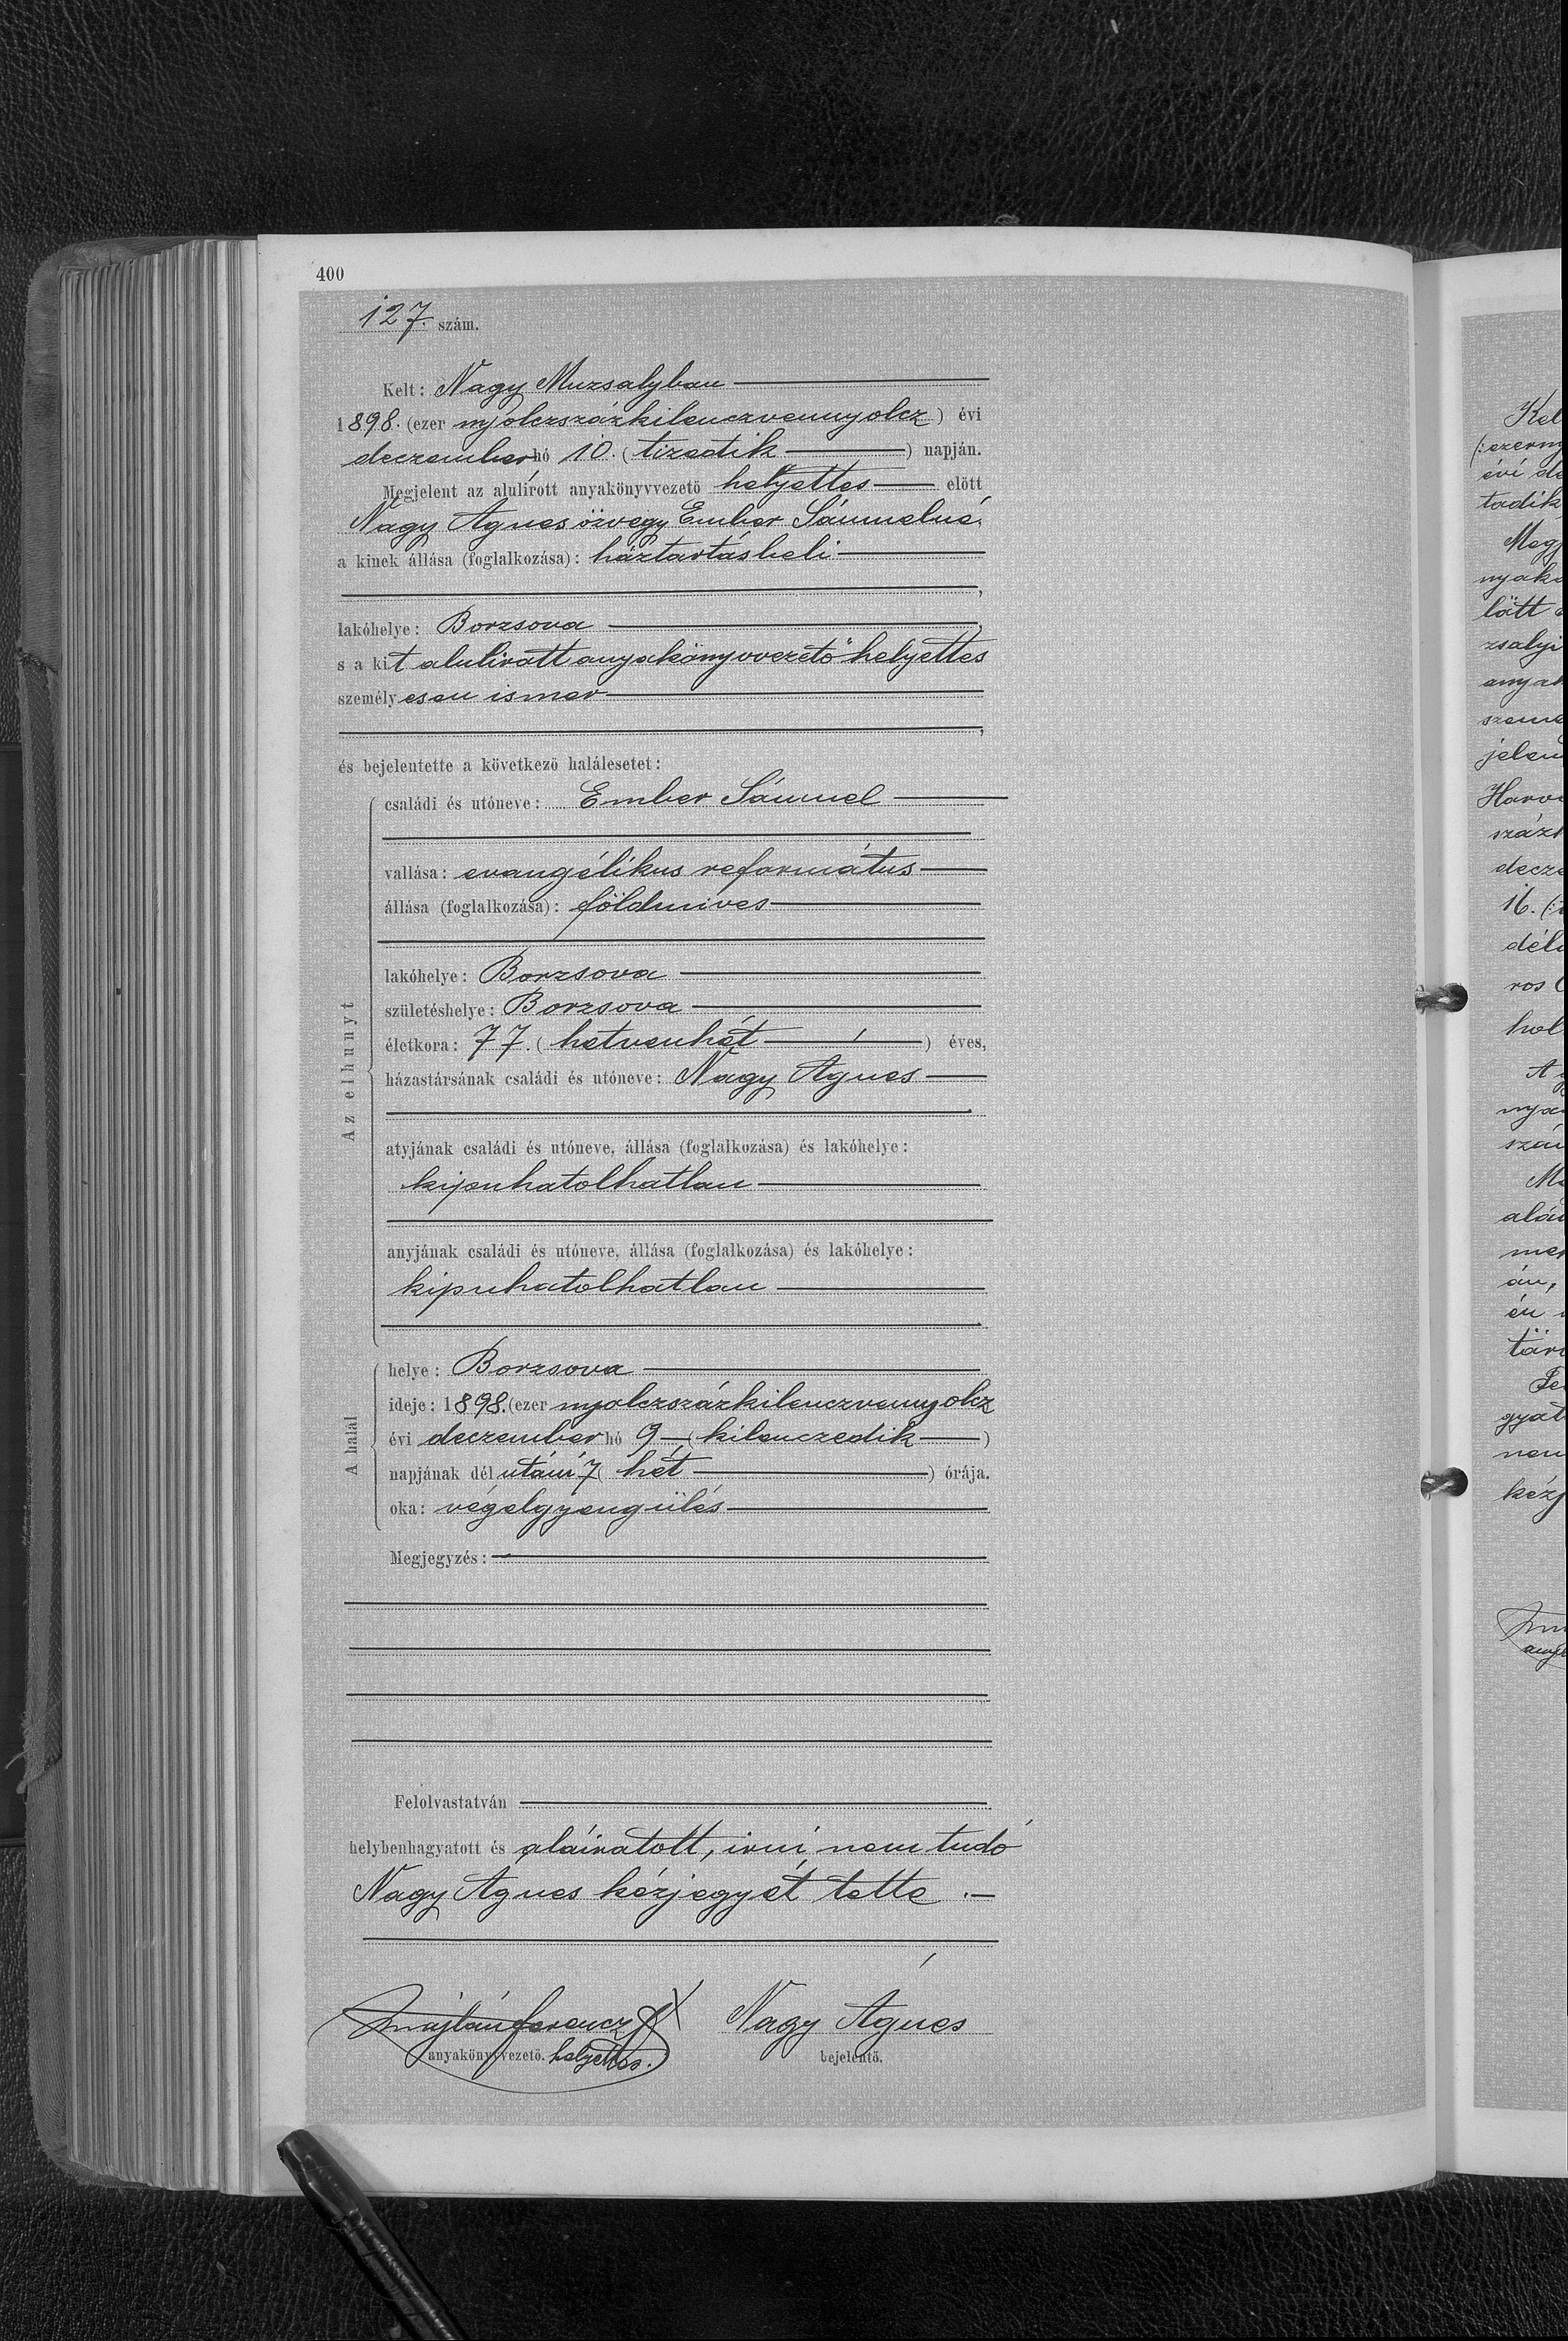 400
127. szám.
Kelt: Nagy Muzsalyban
1898. (ezer nyólczszázkilenczvennyolcz) évi
deczember hó 10. (tizedik) napján.
Megjelent az alulírott anyakönyvvezető helyettes előtt
Nagy Ágnes özvegy Ember Sámuelné
a kinek állása (foglalkozása): háztartásbeli
,
lakóhelye: Borzsova,
s a kit aluliratt anyakönyvvezető helyettes
személyesen ismer
,
és bejelentette a következő halálesetet:
Az elhunyt
családi és utóneve: Ember Sámuel
vallása: evangélikus református
állása (foglalkozása): földmives
lakóhelye: Borzsova
születéshelye: Borzsova
életkora: 77. (hetvenhét) éves,
házastársának családi és utóneve: Nagy Ágnes
atyjának családi és utóneve, állása (foglalkozása) és lakóhelye:
kipuhatolhatlan
anyjának családi és utóneve, állása (foglalkozása) és lakóhelye:
kipuhatolhatlan
A halál
helye: Borzsova
ideje: 1898. (ezer nyolczszázkilenczvennyolcz
évi deczember hó 9 (kilenczedik)
napjának délutáni 7 (hét) órája.
oka: végelgyengülés
Megjegyzés:
Felolvastatván
helybenhagyatott és aláiratott, irni nem tudó
Nagy Ágnes kézjegyét tette.
Ferencz X Nagy Ágnes
anyakönyvvezető. helyettes. bejelentő.